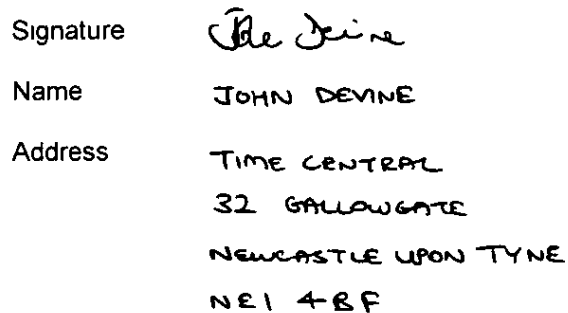 Signature
Name JOHN DEVINE
Address TIME CENTRAL
32 GALLOWGATE
NEWCASTLE UPON TYNE
NE1 4BF